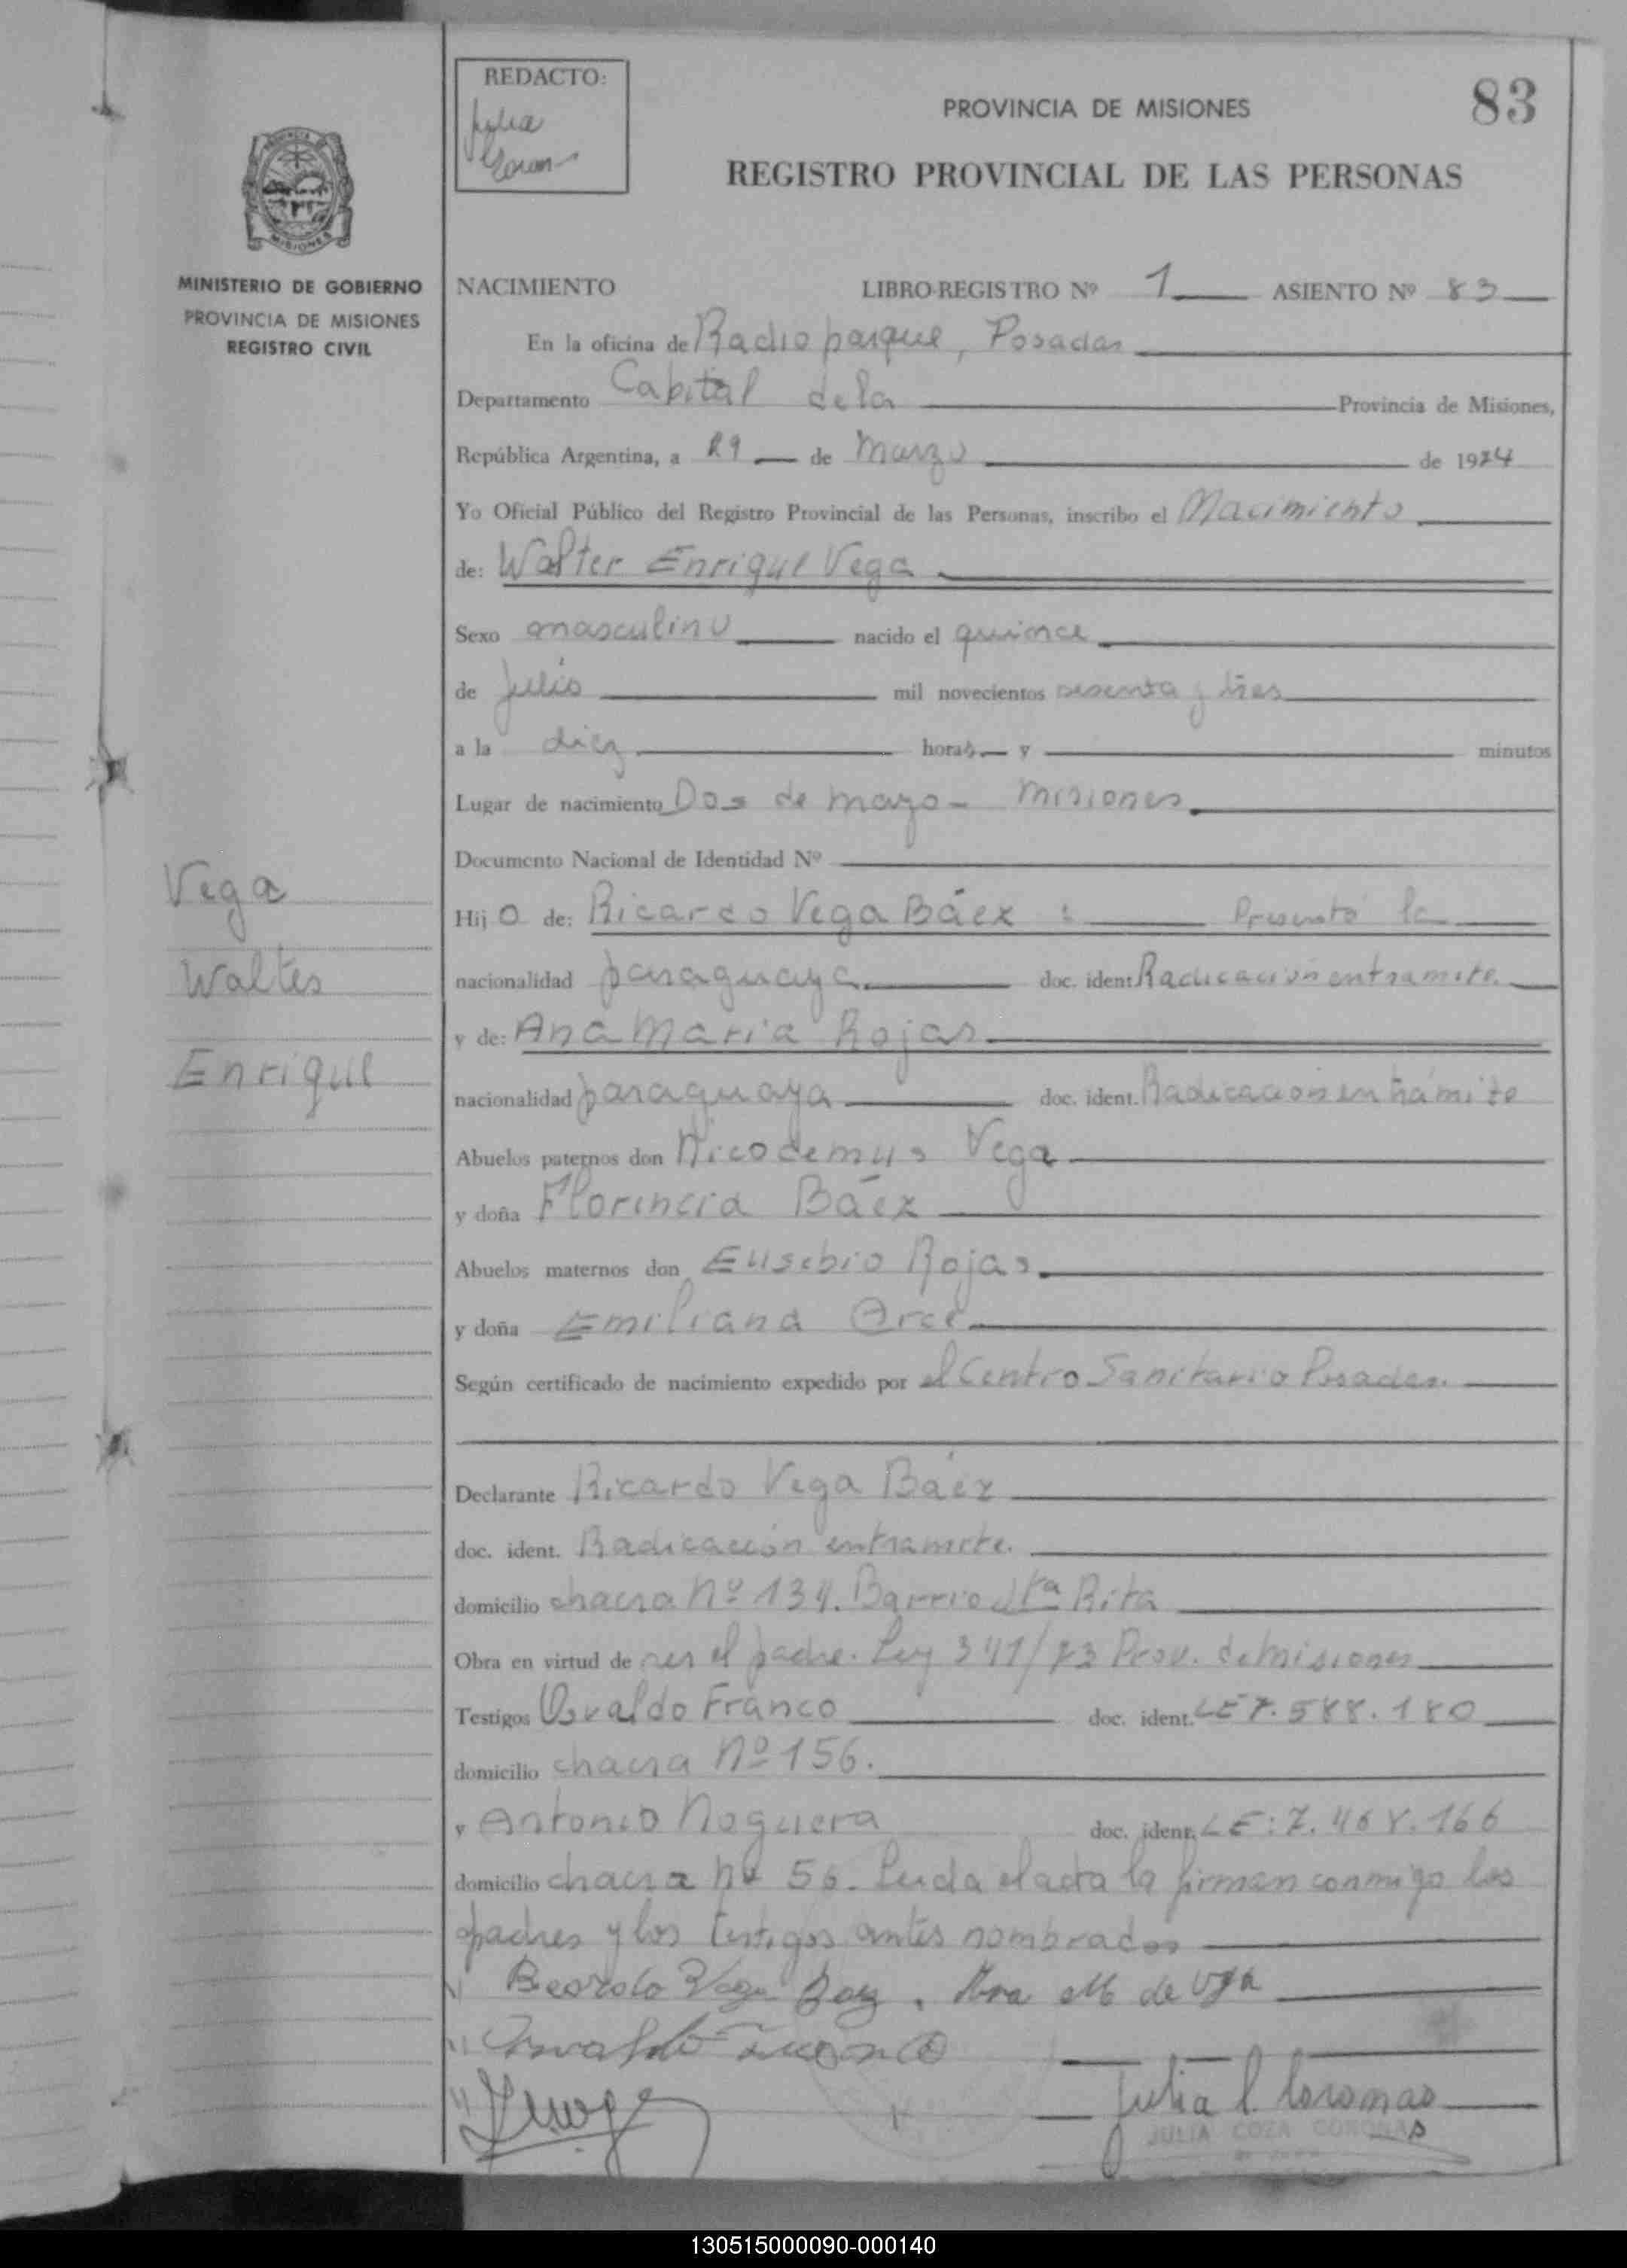 REDACTO:
Julia
PROVINCIA DE MISIONES
83
REGISTRO PROVINCIAL DE LAS PERSONAS
MISIONES
MINISTERIO DE GOBIERNO
PROVINCIA DE MISIONES
REGISTRO CIVIL
NACIMIENTO LIBRO-REGISTRO Nº 1 ASIENTO Nº 83
En la oficina de Radioparque, Posadas
Departamento Capital de la Provincia de Misiones,
República Argentina, a 29 de Marzo de 1974
Yo Oficial Público del Registro Provincial de las Personas, inscribo el Nacimiento
de: Walter Enrique Vega
Sexo masculino nacido el quince
de Julio mil novecientos sesenta y tres
a la diez horas y minutos
Lugar de nacimiento Dos de mayo - Misiones
Documento Nacional de Identidad Nº
Hij o de: Ricardo Vega Báez : Presentó la
nacionalidad paraguaya doc. ident. Radicación en tramite.
y de: Ana Maria Rojas
nacionalidad paraguaya doc. ident. Radicación en trámite
Abuelos paternos don Nicodemus Vega
y doña Florencia Báez
Abuelos maternos don Eusebio Rojas
y doña Emiliana Arce
Según certificado de nacimiento expedido por el Centro Sanitario Posadas.
Declarante Ricardo Vega Báez
doc. ident. Radicación en tramite.
domicilio chacra Nº 134. Barrio Sta Rita
Obra en virtud de ser el padre. Ley 341/73 Prov. de Misiones
Testigos Osvaldo Franco doc. ident. LE 7.588.180
domicilio chacra Nº 156.
y Antonio Noguera doc. ident. LE: 7.468.166
domicilio chacra Nº 56. Leida el acta la firman conmigo los
padres y los testigos antes nombrados
Vega
Walter
Enrique
Ana M de Vga
Osvaldo Franco
Julia C. Coronas
JULIA COZA CORONAS
130515000090-000140